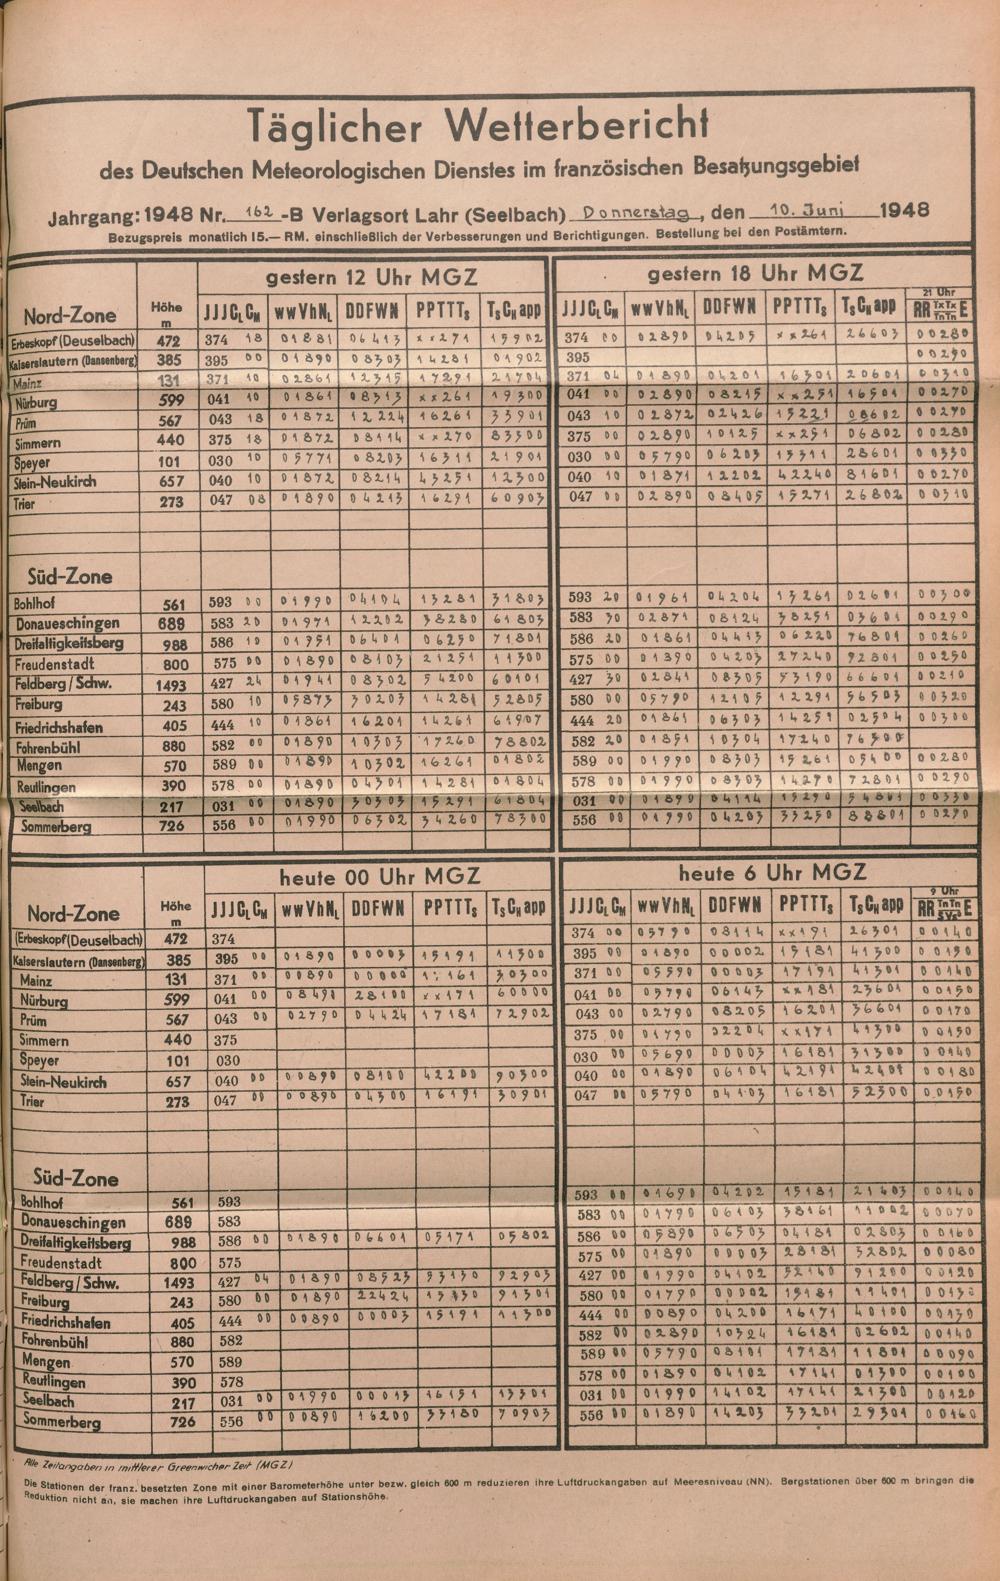 Täglicher Wetterbericht
des Deutschen Meteorologischen Dienstes im französischen Besatzungsgebiet
Jahrgang: 1948 Nr. 162 -B Verlagsort Lahr (Seelbach) Donnerstag, den 10. Juni 1948
Bezugspreis monatlich 15.— RM. einschließlich der Verbesserungen und Berichtigungen. Bestellung bei den Postämtern.
gestern 12 Uhr MGZ gestern 18 Uhr MGZ
21 Uhr
Nord-Zone Höhe m JJJCLCM wwVhNL DDFWN PPTTTS TSCHapp JJJCLCM wwVhNL DDFWN PPTTTS TSCHapp RR TxTx TnTn E
Erbeskopf (Deuselbach) 472 374 18 01881 06413 xx271 15902 374 00 02890 04205 xx261 26603 00280
Kaiserslautern (Dansenberg) 385 395 00 01890 08303 14281 01902 395 00290
Mainz 131 371 10 02861 12315 17291 21704 371 04 01890 04201 16301 20601 00310
Nürburg 599 041 10 01861 08313 xx261 19300 041 00 02890 08215 xx251 16501 00270
Prüm 567 043 18 01872 12224 16261 33901 043 10 02872 02426 15221 08602 00270
Simmern 440 375 18 01872 08114 xx270 83500 375 00 02890 10125 xx251 06802 00280
Speyer 101 030 10 05771 08203 16311 21901 030 00 05790 06203 15311 28601 00330
Stein-Neukirch 657 040 10 01872 08214 43251 12300 040 10 01871 12202 42240 81601 00270
Trier 273 047 08 01890 04213 16291 60903 047 00 02890 08405 15271 26802 00310
Süd-Zone
Bohlhof 561 593 00 01990 04104 13281 31803 593 20 01961 04204 13261 02601 00300
Donaueschingen 689 583 20 01971 12202 38280 61803 583 30 02871 08124 38251 03601 00290
Dreifaltigkeitsberg 988 586 10 01951 06401 06250 71801 586 20 01861 04413 06220 76801 00260
Freudenstadt 800 575 00 01890 08103 21251 11300 575 00 01890 04203 27240 92801 00250
Feldberg / Schw. 1493 427 24 01941 08302 54200 60101 427 30 02841 08305 53190 66601 00210
Freiburg 243 580 10 05873 30203 14281 52805 580 00 05790 12105 12291 56503 00320
Friedrichshafen 405 444 10 01861 16201 14261 61907 444 20 01861 06303 14251 02504 00300
Fohrenbühl 880 582 00 01890 10303 17260 78802 582 20 01851 10304 17240 76500
Mengen 570 589 00 01890 10302 16261 01802 589 00 01990 08303 15261 05400 00280
Reutlingen 390 578 00 01890 04301 14281 01804 578 00 01990 08303 14270 72801 00290
Seelbach 217 031 00 01890 30303 15291 61804 031 00 01890 04114 15290 54801 00330
Sommerberg 726 556 00 01990 06302 34260 78300 556 00 01990 04203 33250 88801 00270
heute 00 Uhr MGZ heute 6 Uhr MGZ
9 Uhr
Nord-Zone Höhe m JJJCLCM wwVhNL DDFWN PPTTTS TSCHapp JJJCLCM wwVhNL DDFWN PPTTTS TSCHapp RR TnTn E
(Erbeskopf (Deuselbach) 472 374 374 00 05790 08114 xx191 26301 00140
Kaiserslautern (Dansenberg) 385 395 00 01890 00003 15191 11300 395 00 01890 00002 15181 41300 00150
Mainz 131 371 00 00890 00000 161 30300 371 00 05590 00003 17191 41301 00140
Nürburg 599 041 00 08491 28100 xx171 60000 041 00 05790 06143 xx181 23601 00150
Prüm 567 043 00 02790 04424 17181 72902 043 00 02790 08205 16201 36601 00170
Simmern 440 375 375 00 01790 32204 xx171 41300 00150
Speyer 101 030 030 00 05690 00003 16181 31300 00140
Stein-Neukirch 657 040 00 00890 08100 42200 90300 040 00 01890 06104 42191 42401 00180
Trier 273 047 00 00890 04300 16191 30901 047 00 05790 04103 16181 52300 00150
Süd-Zone
Bohlhof 561 593 593 00 01690 04202 15181 21403 00140
Donaueschingen 689 583 583 00 01790 06103 38161 11002 00070
Dreifaltigkeitsberg 988 586 00 01890 06601 05171 05802 586 00 05890 06503 04181 02803 00160
Freudenstadt 800 575 575 00 01890 00003 28181 32802 00080
Feldberg / Schw. 1493 427 04 01890 08523 53130 92903 427 00 01990 04102 52140 91200 00120
Freiburg 243 580 00 01890 22424 91301 580 00 01790 00002 15181 11401
Friedrichshafen 405 444 00 00890 00003 15191 11300 444 00 00890 04200 16171 40100 00130
Fohrenbühl 880 582 582 00 02890 10324 16181 02602 00140
Mengen 570 589 589 00 05790 08101 17131 11801 00090
Reutlingen 390 578 578 00 01890 04102 17141 01300 00100
Seelbach 217 031 00 01990 00013 16151 13301 031 00 01990 14102 17141 21300 00120
Sommerberg 726 556 00 00890 16200 33180 70903 556 00 01890 14203 33201 29304 00160
Alle Zeitangaben in mittlerer Greenwicher Zeit (MGZ)
Die Stationen der franz. besetzten Zone mit einer Barometerhöhe unter bezw. gleich 600 m reduzieren ihre Luftdruckangaben auf Meeresniveau (NN). Bergstationen über 600 m bringen die
Reduktion nicht an, sie machen ihre Luftdruckangaben auf Stationshöhe.